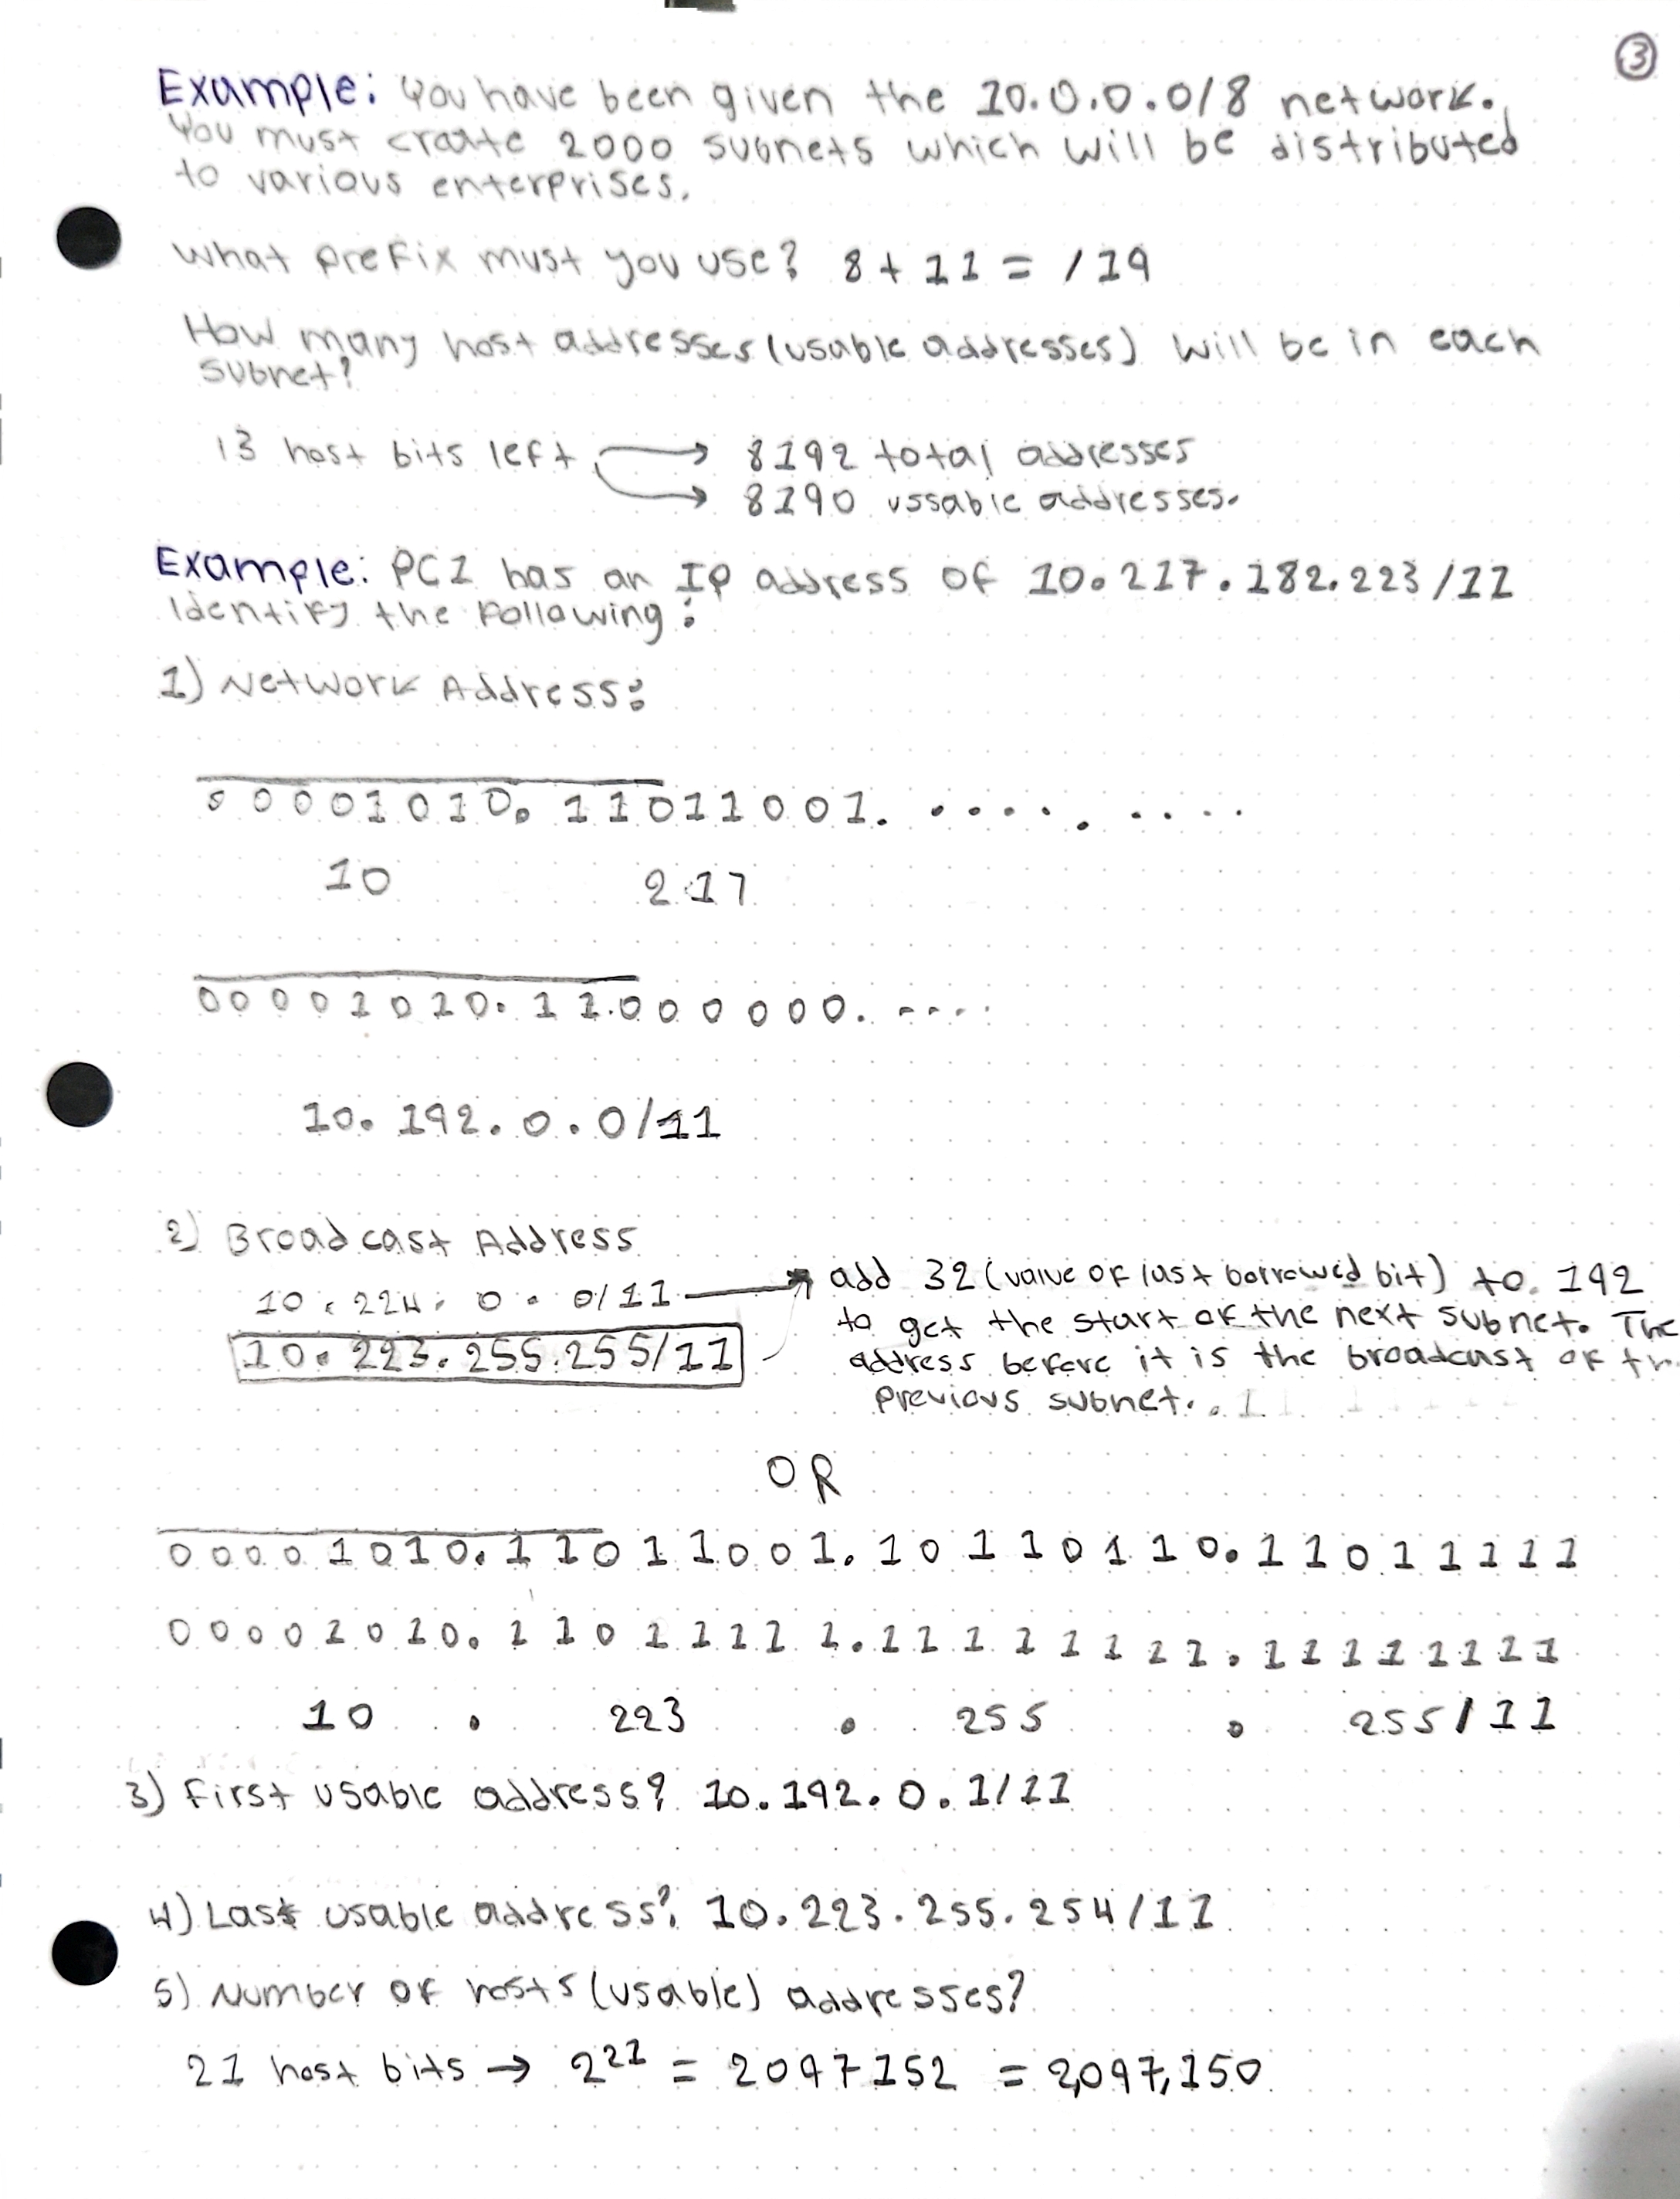 3
Example: You have been given the 10.0.0.0/8 network.
You must create 2000 subnets which will be distributed
to various enterprises.
What prefix must you use? 8 + 11 = /19
How many host addresses (usable addresses) will be in each
subnet?
13 host bits left → 8192 total addresses
→ 8190 ussable addresses.
Example: PC1 has an IP address of 10.217.182.223/11
Identify the following:
1) Network Address:
00001010.11011001. . . . . . . . . .
10 217
00001010.11.000000. ....
10.192.0.0/11
2) Broadcast Address
10.224.0.0/11 → add 32 (value of last borrowed bit) to 192
to get the start of the next subnet. The
10.223.255.255/11 address before it is the broadcast of
previous subnet.
OR
00001010.11011001.10110110.11011111
00001010.11011111.11111111.11111111
10 . 223 . 255 . 255/11
3) First usable address? 10.192.0.1/11
4) Last usable address? 10.223.255.254/11
5) Number of hosts (usable) addresses?
21 host bits → 2²¹ = 2097152 = 2,097,150